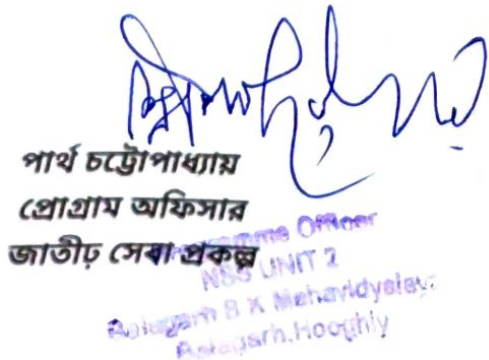 পার্থ চট্টোপাধ্যায়
প্রোগ্রাম অফিসার
জাতীঢ় সেবা প্রকল্প
Programme Officer
NSS UNIT 2
Balagarh B K Mahavidyalaya
Balagarh, Hooghly